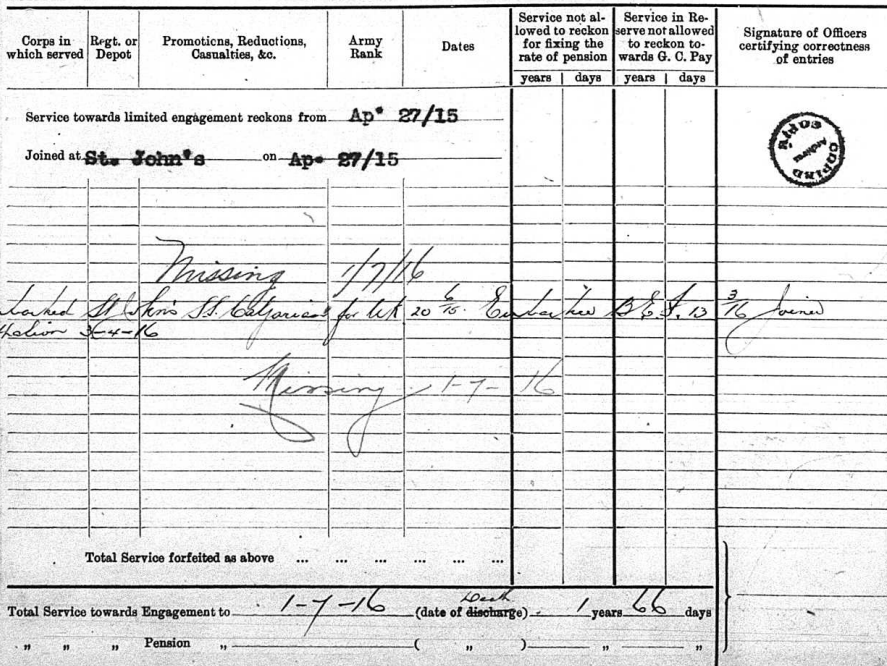 Corps in which served
Regt. or Depot
Promotions, Reductions, Casualties, &c.
Army Rank
Dates
Service not allowed to reckon for fixing the rate of pension
years days
Service in Reserve not allowed to reckon towards G. C. Pay
years days
Signature of Officers certifying correctness of entries
Service towards limited engagement reckons from Ap. 27/15
Joined at St. John's on Ap. 27/15
COPIED
Archives
COPIED
Missing 1/7/16
barked St. John's S.S. Calgarian for UK 20 6/15. Embarked B.E.F. 13 3/16 Joined
3-4-16
Missing 1-7-16
Total Service forfeited as above ... ... ... ... ... ...
Total Service towards Engagement to 1-7-16 (date of discharge) Death 1 years 66 days
„ „ „ Pension „ ( „ ) „ „